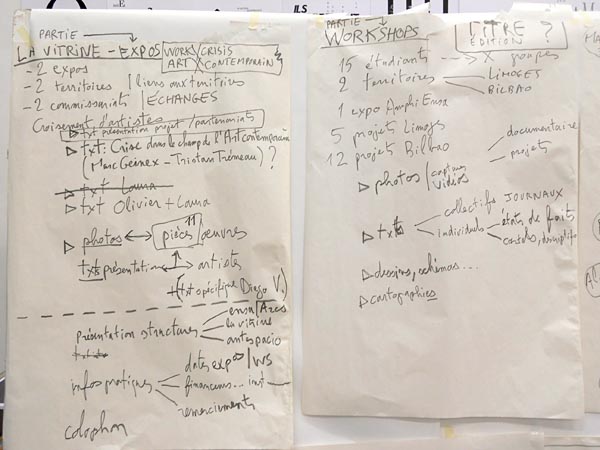 PARTIE
LA VITRINE - EXPOS
WORK / CRISIS
ART X CONTEMPORAIN
- 2 expos
- 2 territoires / liens aux territoires
- 2 commissariats / ECHANGES
Croisement d'artistes
txt présentation projet / partenariats
txt : Crise dans le champ de l'Art contemporain
(Marc Geinex - Tristan Trémeau) ?
txt Laura
txt Olivier + Laura
photos pièces / oeuvres
11
txts présentation artistes
+ txt spécifique Diego V.)
présentation structures
ensa / Azcs
la vitrine
antespacio
infos pratiques
dates expos / WS
financeurs... inst
remerciements
colophon
PARTIE
WORKSHOPS
TITRE ?
EDITION
15 étudiants X groupes
2 territoires
LIMOGES
BILBAO
1 expo Amphi Ensa
5 projets Limoges
12 projets Bilbao
photos / captures
vidéos
documentaire
projets
txts
collectifs JOURNAUX
individuels
états de faits
dessins, schémas...
cartographies